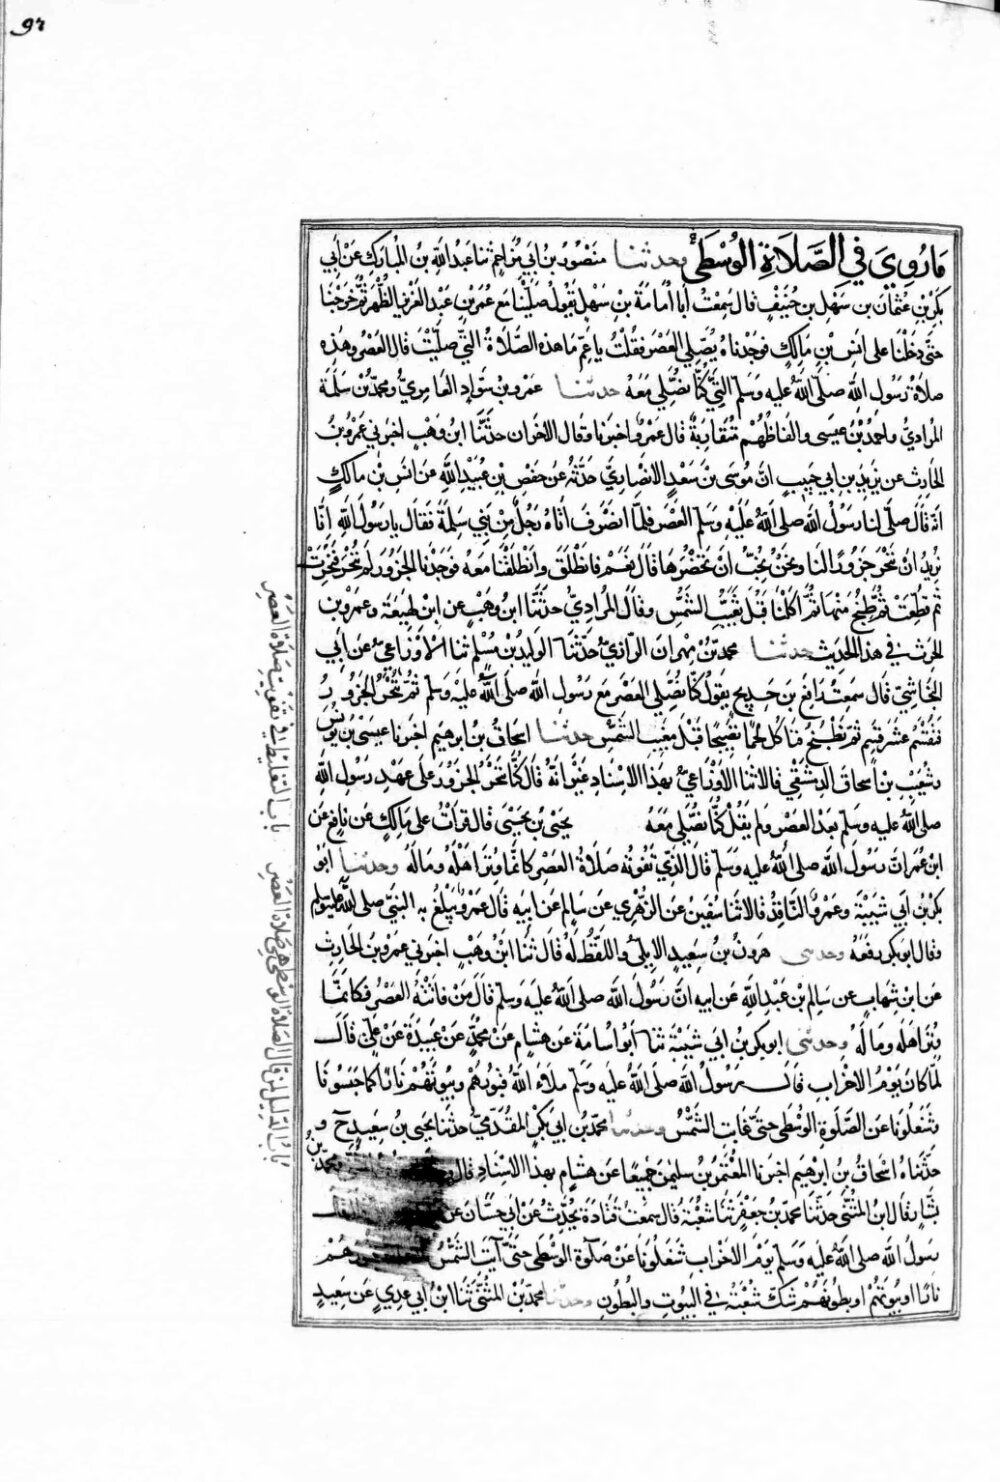 ٩٢
مَا رُوِيَ فِي الصَّلَاةِ الوُسْطَى وحدثنا منصور بن ابي مزاحم ثنا عبد الله بن المبارك عن أبي
بكر بن عثمان بن سهل بن حنيف قال سمعت أبا أمامة بن سهل يقول صلينا مع عمر بن عبد العزيز الظهر ثم خرجنا
حتى دخلنا على انس بن مالك فوجدناه يصلي العصر فقلت يا عم ما هذه الصلاة التي صليت قال العصر وهذه
صلاة رسول الله صلى الله عليه وسلم التي كنا نصلي معه حدثنا عمرو بن سواد العامري ومحمد بن سلمة
المرادي واحمد بن عيسى والفاظهم متقاربة قال عمرو اخبرنا وقال الاخران حدثنا ابن وهب اخبرني عمرو بن
الحارث عن يزيد بن ابي حبيب ان موسى بن سعد الانصاري حدثه عن حفص بن عبيد الله عن انس بن مالك
انه قال صلى لنا رسول الله صلى الله عليه وسلم العصر فلما انصرف اتاه رجل من بني سلمة فقال يا رسول الله انا
نريد ان ننحر جزورا لنا ونحن نحب ان تحضرها قال نعم فانطلق وانطلقنا معه فوجدنا الجزور لم تنحر فنحرت
ثم قطعت ثم طبخ منها ثم اكلنا قبل تغيب الشمس وقال المرادي حدثنا ابن وهب عن ابن لهيعة وعمرو بن
الحرث في هذا الحديث حدثنا محمد بن مهران الرازي حدثنا الوليد بن مسلم ثنا الاوزاعي عن أبي
النجاشي قال سمعت رافع بن خديج يقول كنا نصلي العصر مع رسول الله صلى الله عليه وسلم ثم تنحر الجزور
فتقسم عشر قسم ثم تطبخ فناكل لحما نضيجا قبل مغيب الشمس حدثنا اسحاق بن ابرهيم اخبرنا عيسى بن يونس
وشعيب بن اسحاق الدمشقي قالا ثنا الاوزاعي بهذا الاسناد غير انه قال كنا ننحر الجزور على عهد رسول الله
صلى الله عليه وسلم بعد العصر ولم يقل كنا نصلي معه يحيى بن يحيى قال قرات على مالك عن نافع عن
ابن عمر ان رسول الله صلى الله عليه وسلم قال الذي تفوته صلاة العصر كانما وتر اهله وماله وحدثنا ابو
بكر بن ابي شيبة وعمرو الناقد قالا ثنا سفين عن الزهري عن سالم عن ابيه قال عمرو يبلغ به النبي صلى الله عليه وسلم
وقال ابو بكر رفعه وحدثني هرون بن سعيد الايلي واللفظ له قال ثنا ابن وهب اخبرني عمرو بن الحارث
عن ابن شهاب عن سالم بن عبد الله عن ابيه ان رسول الله صلى الله عليه وسلم قال من فاتته العصر فكانما
وتر اهله وماله وحدثني ابو بكر بن ابي شيبة ثنا ابو اسامة عن هشام عن محمد عن عبيدة عن علي قال
لما كان يوم الاحزاب قال رسول الله صلى الله عليه وسلم ملاء الله قبورهم وبيوتهم نارا كما حبسونا
وشغلونا عن الصلوة الوسطى حتى غابت الشمس وحدثنا محمد بن ابي بكر المقدمي حدثنا يحيى بن سعيد ح و
حدثناه اسحاق بن ابرهيم اخبرنا المعتمر بن سليمن جميعا عن هشام بهذا الاسناد ومحمد بن
بشار قال ابن المثنى حدثنا محمد بن جعفر ثنا شعبة قال سمعت قتادة يحدث عن ابي حسان عن قال
رسول الله صلى الله عليه وسلم يوم الاحزاب شغلونا عن صلوة الوسطى حتى آبت الشمس
نارا او بيوتهم او بطونهم شك شعبة في البيوت والبطون وحدثنا محمد بن المثنى ثنا ابن ابي عدي عن سعيد
باب التغليظ في تفويت صلاة العصر
باب الدليل لمن قال الصلاة الوسطى هي صلاة العصر